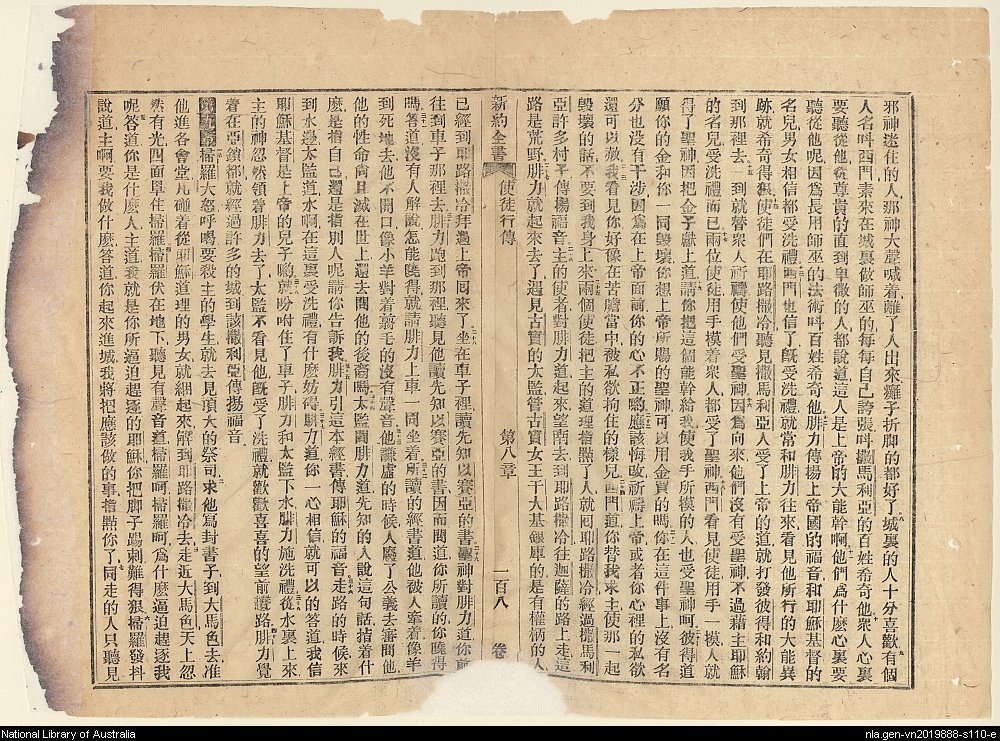 邪神迷住的人那神大聲喊着離了人出來癱子折脚的都好了城裏的人十分喜歡有個
人名呌西門素來在城裏做師巫的每每自己誇張呌撒馬利亞的百姓希奇他衆人心裏
要聽從他從尊貴的直到卑微的人都說道這人是上帝的大能幹啊他們爲什麼心裏要
聽從他呢因爲長用師巫的法術呌百姓希奇他腓力傳揚上帝國的福音和耶穌基督的
名兒男女相信都受洗禮西門也信了旣受洗禮就常和腓力往來看見他所行的大能異
跡就希奇得狠使徒們在耶路撒冷聽見撒馬利亞人受了上帝的道就打發彼得和約翰
到那裡去一到就替衆人祈禱使他們受聖神因爲向來他們沒有受聖神不過藉主耶穌
的名兒受洗禮而已兩位使徒用手摸着衆人都受了聖神西門看見使徒用手一摸人就
得了聖神因把金子獻上道請你把這個能幹給我使我手所摸的人也受聖神呵彼得道
願你的金和你一同毀壞你想上帝所賜的聖神可以用金買的嗎你在這件事上沒有名
分也没有干涉因爲在上帝面前你的心不正喲應該悔改祈禱上帝或者你心裡的私欲
還可以赦我看見你好像在苦膽當中被私欲拘住的樣兒西門道你替我求主使那一起
毀壞的話不要到我身上來兩個使徒把主的道理指點了人就回耶路撒冷經過撒馬利
亞許多村子傳揚福音主的使者對腓力道起來望南去到耶路撒冷往迦薩的路上走這
路是荒野腓力就起來去了遇見古實的太監管古實女王干大基銀庫的是有權柄的人
新約全書 使徒行傳 第八章 一百八 卷
已經到耶路撒冷拜過上帝回來了坐在車子裡讀先知以賽亞的書聖神對腓力道你前
往到車子那裡去腓力跑到那裡聽見他讀先知以賽亞的書因而問道你所讀的你曉得
嗎答道沒有人解說怎能曉得就請腓力上車一同坐着所讀的經書道他被人牽着像羊
到死地去他不開口像小羊對着翦毛的沒有聲音他謙虛的時候人廢了公義去審問他
他的性命尙且滅在世上還去問他的後裔嗎太監問腓力道先知的人說這句話指着什
麼是指自己還是指別人呢請你告訴我腓力引這本經書傳耶穌的福音走路的時候來
到水邊太監道水啊在這裏受洗禮有什麼妨碍腓力道你一心相信就可以的答道我信
耶穌基督是上帝的兒子喲就吩咐住了車子腓力和太監下水腓力施洗禮從水裏上來
主的神忽然領着腓力去了太監不看見他旣受了洗禮就歡歡喜喜的望前讚路腓力覺
着在亞鎖都就經過許多的城到該撒利亞傳揚福音
第九章掃羅大怒呼喝要殺主的學生就去見頂大的祭司求他寫封書子到大馬色去准
他進各會堂凡碰着從耶穌道理的男女就綑起來解到耶路撒冷去走近大馬色天上忽
然有光四面罩住掃羅掃羅伏在地下聽見有聲音道掃羅呵掃羅呵爲什麼逼迫趕逐我
呢答道你是什麼人主道我就是你所逼迫趕逐的耶穌你把脚子踢刺難得狠掃羅發抖
說道主啊要我做什麼答道你起來進城我將把應該做的事指點你了同走的人只聽見
National Library of Australia
nla.gen-vn2019888-s110-e